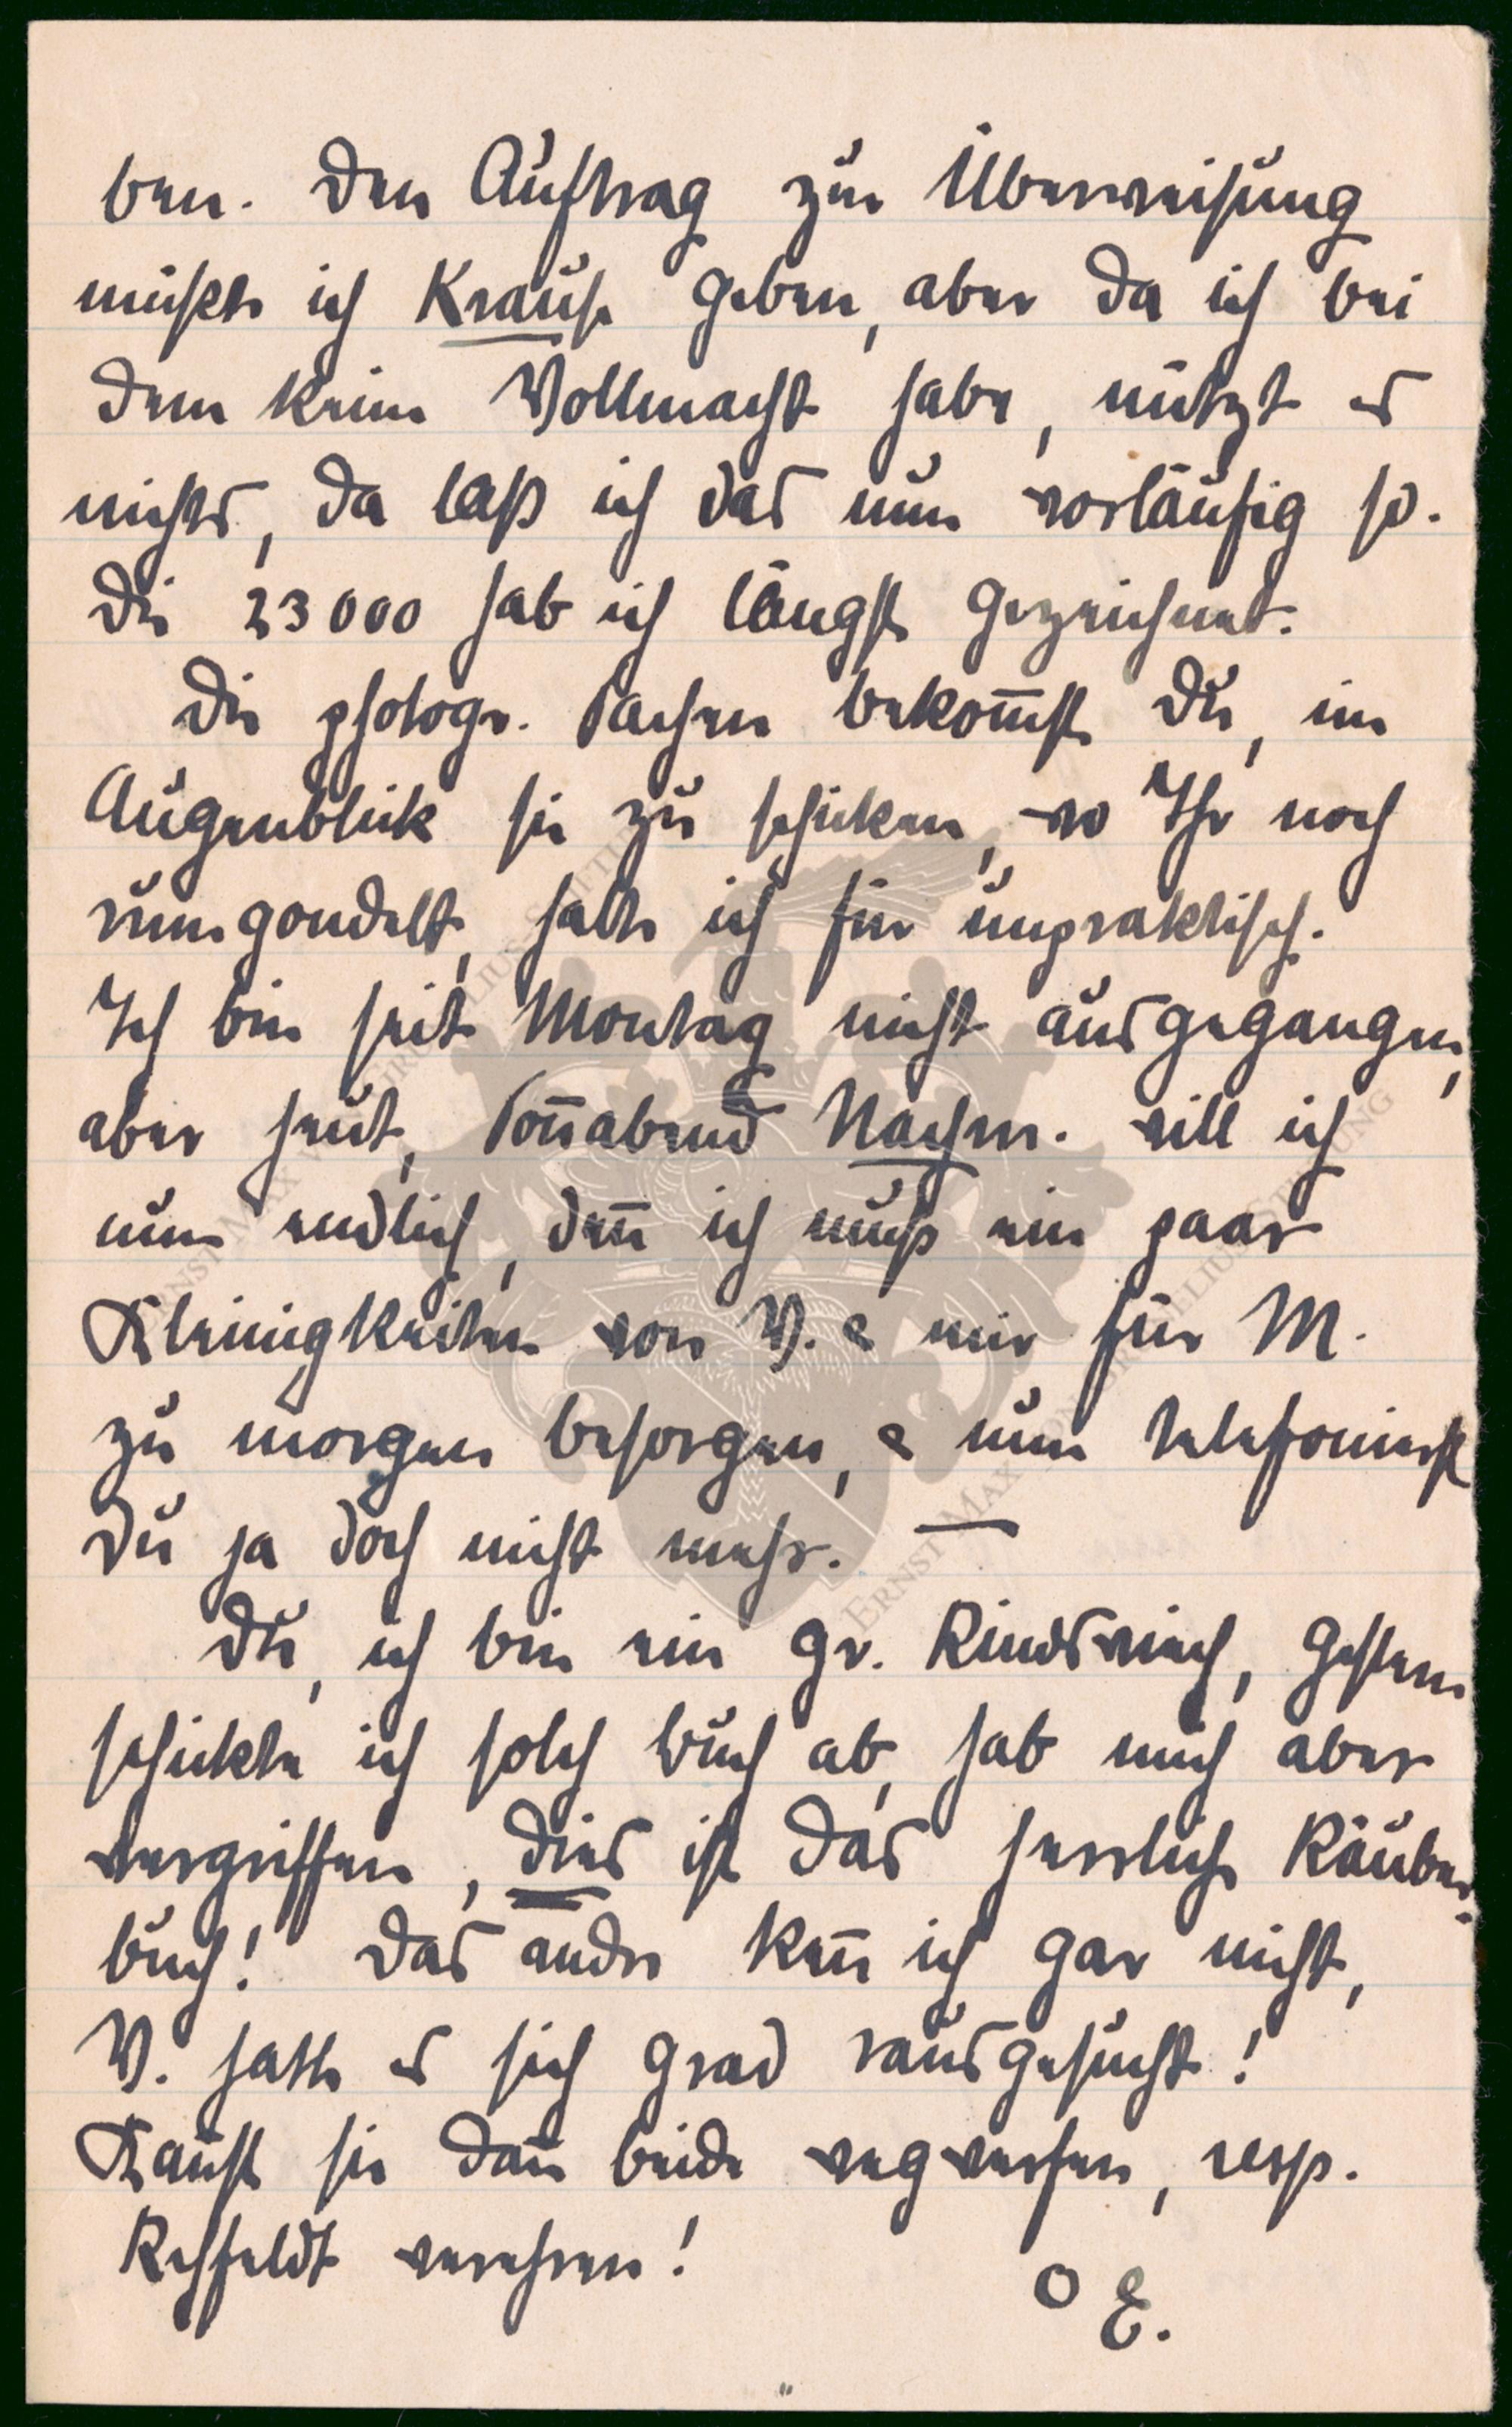 ben. Den Auftrag zur Überweisung
müßte ich Krause geben, aber da ich bei
dem keine Vollmacht habe, nützt es
nichts, da laß ich das nun vorläufig so.
Die 23000 hab ich längst gezeichnet.
Die photogr. Sachen bekom̅st Du, im
Augenblick sie zu schicken, wo Ihr noch
rumgondelt, halte ich für unpraktisch.
Ich bin seit Montag nicht ausgegangen,
aber heut, Son̅abend Nachm. will ich
nun endlich, den̅ ich muß ein paar
Kleinigkeiten von V. & mir für M.
zu morgen besorgen, & nun telefonierst
Du ja doch nicht mehr. —
Du, ich bin ein gr. Rindsviech, gestern
schickte ich solch Buch ab, hab mich aber
vergriffen, dies ist das herrliche Räuber-
buch! Das andre ken̅ ich gar nicht,
V. hatte es sich grad rausgesucht!
Kan̅st sie dan̅ beide wegwerfen, resp.
Rehfeldt verehren!
O E.
ERNST MAX VON GRUELIUS STIFTUNG